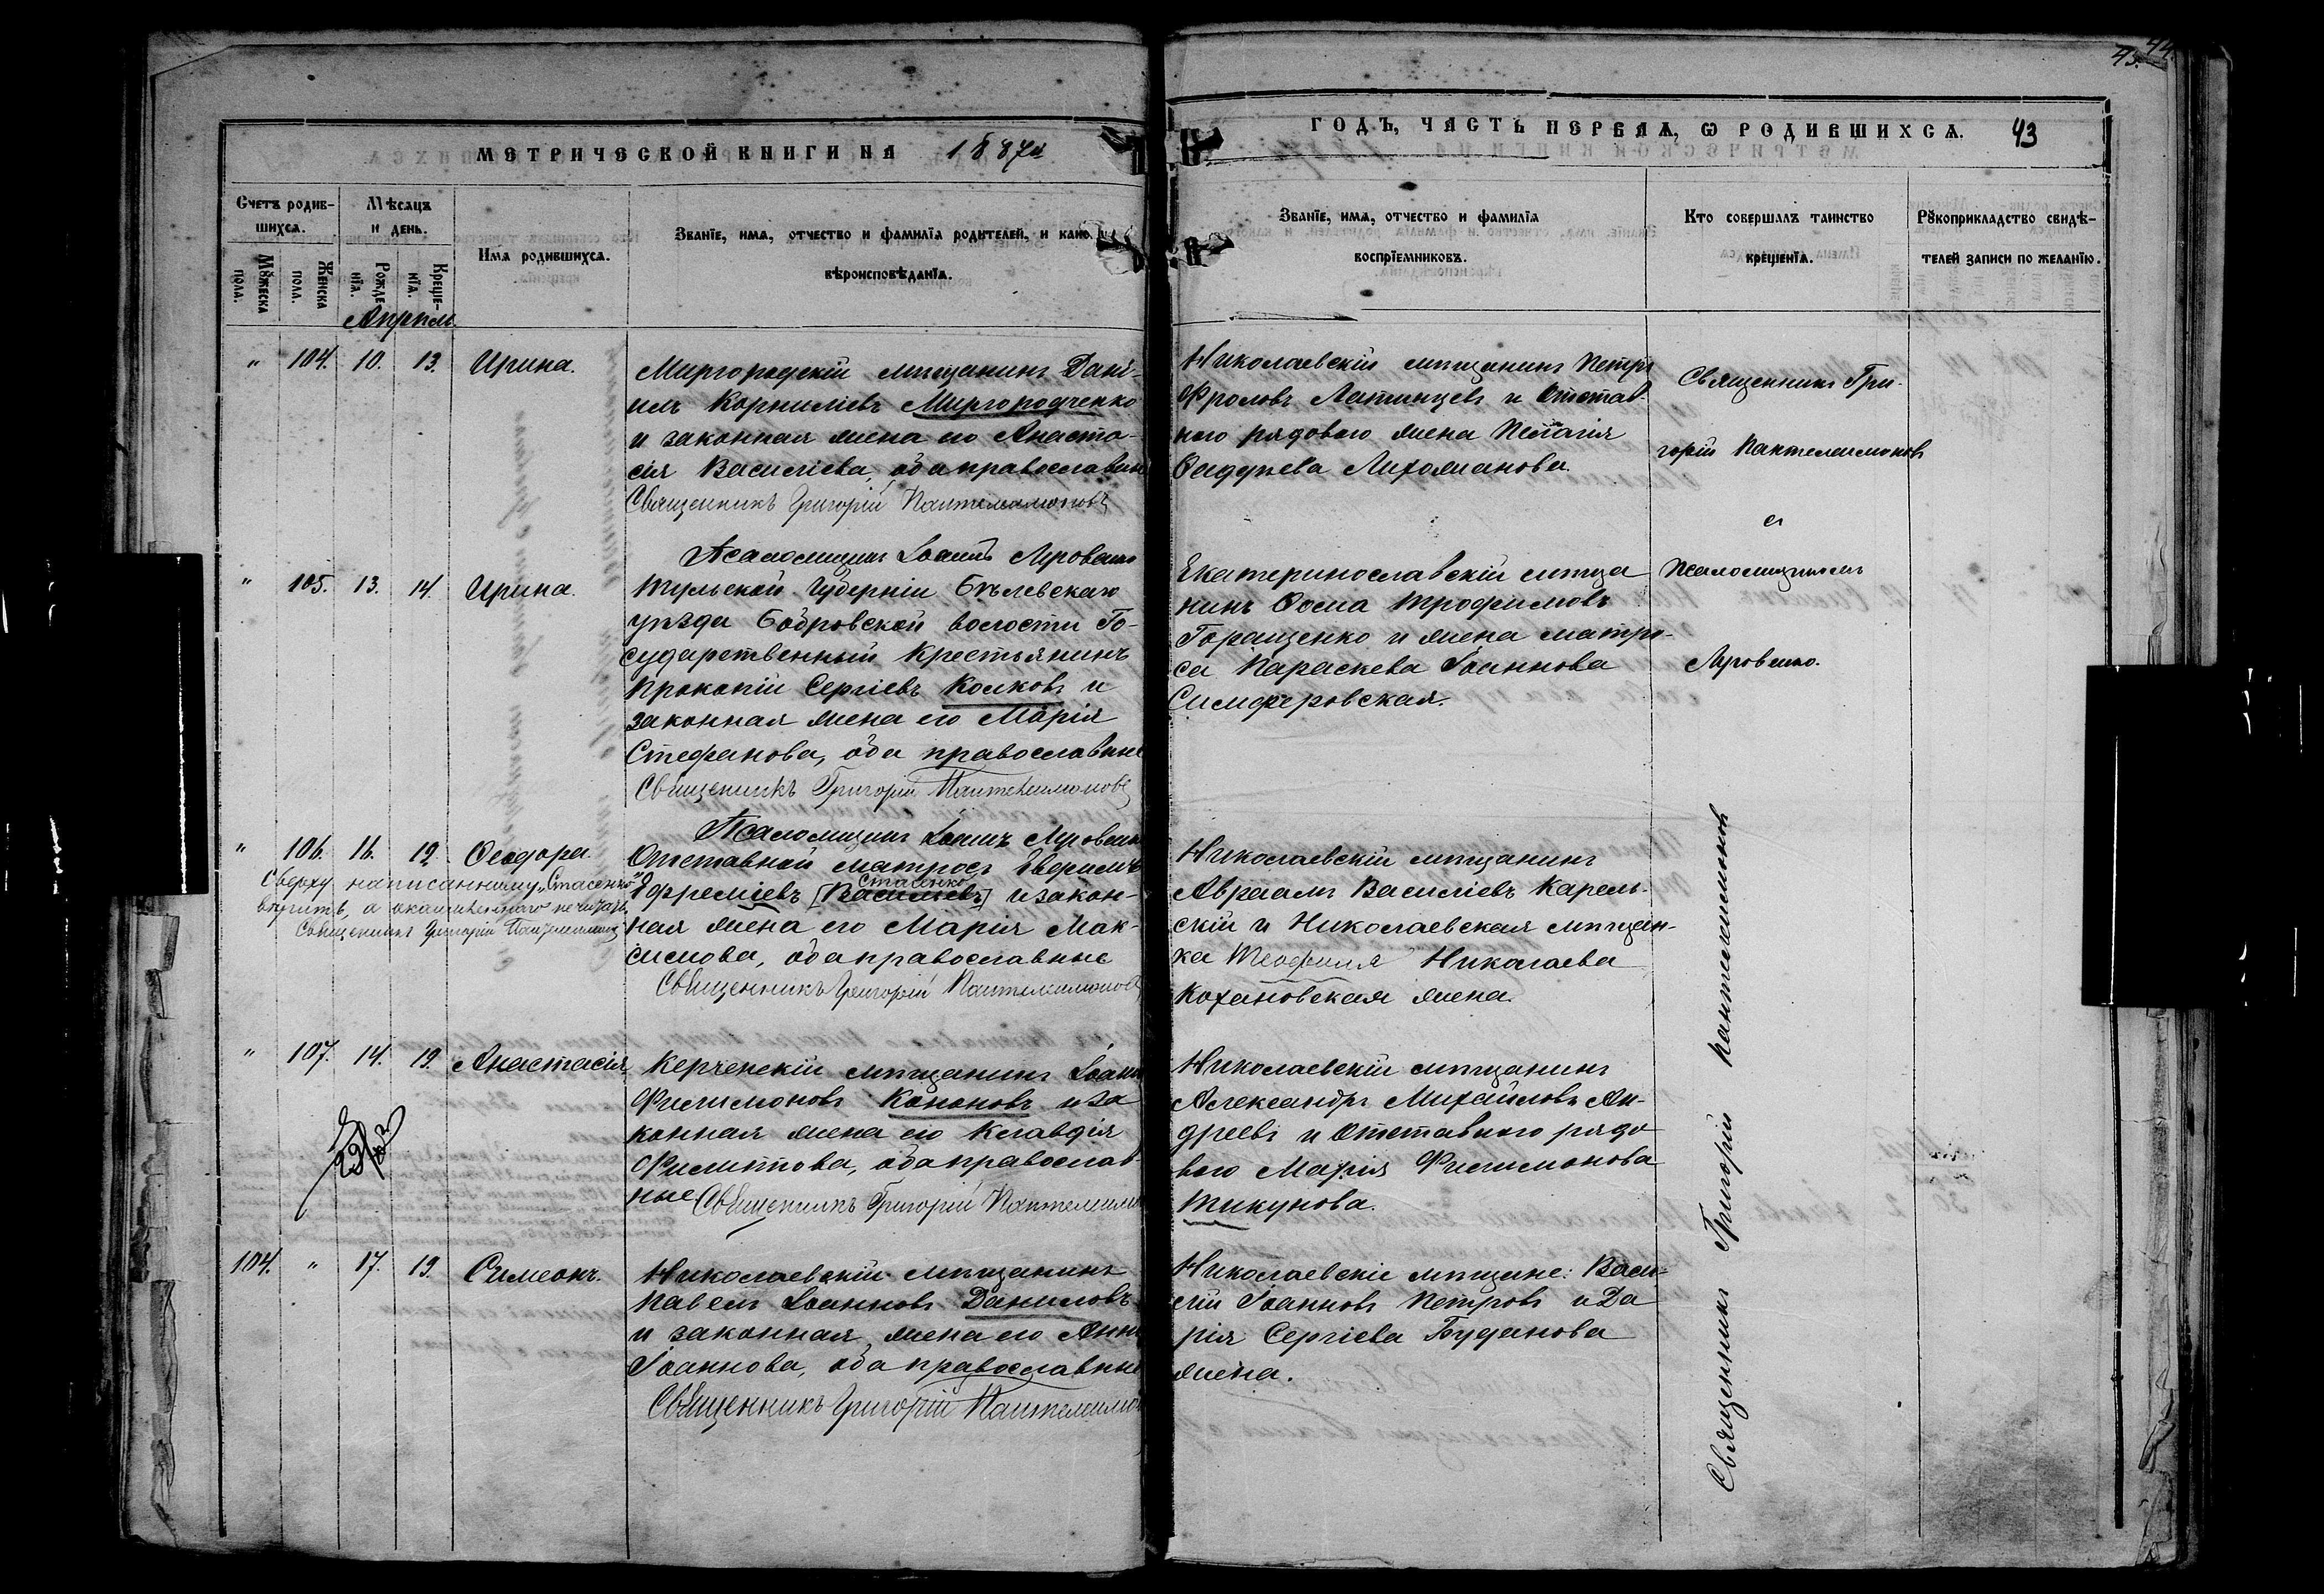 44.
45.
МЕТРИЧЕСКОЙ КНИГИ НА 1887й
ГОДЪ, ЧАСТЬ ПЕРВАЯ, Ѡ РОДИВШИХСЯ. 43
Счетъ родив-
шихся.
Мѣсяцъ
и день.
Мꙋжеска
пола.
Женска
пола.
Рожде
нїя.
Креще-
нїя.
Имя родившихся.
Званїе, имя, отчество и фамилїя родителей, и како.
вѣроисповѣданїя.
Званїе, имя, отчество и фамилїя
воспрїемниковъ.
Кто совершалъ таинство
крещенїя.
Рꙋкоприкладство свидѣ-
телей записи по желанїю.
Апрѣль.
" 104. 10. 13. Ирина.
Миргородскій мѣщанинъ Дані-
илъ Корниліевъ Миргородченко
и законная жена его Анаста-
сія Василіева, оба православные
Священникъ Григорій Пантелеимоновъ
Псаломщикъ Іоаннъ
Николаевскій мѣщанинъ Петръ
Фроловъ Латынцевъ и Отстав-
ного рядового жена Пелагія
Фаддѣева Лихоманова.
Священникъ Гри-
горій Пантелеимоновъ
съ
Псаломщикомъ
" 105. 13. 14. Ирина.
Тульской Губерніи Бѣлевскаго
уѣзда Бобровской волости Го-
сударственный Крестьянинъ
Прокопій Сергіевъ Колковъ и
законная жена его Марія
Стефанова, оба православные
Священникъ Григорій Пантелеимоновъ
Псаломщикъ Іоаннъ
Екатеринославскій мѣща
нинъ Ѳома Трофимовъ
Горащенко и жена матро-
са Параскева Іоаннова
Симферовская.
" 106. 16. 19. Ѳеодора.
Сверху написанному "Стасенко"
вѣрить, а окаймленного не читать.
Священникъ Григорій Пантелеимоновъ
Отставной матросъ Евфимъ
Стасенко
Ефреміевъ [Васильевъ] и закон-
ная жена его Марія Мак-
симова, оба православные
Священникъ Григорій Пантелеимоновъ
Николаевскій мѣщанинъ
Авраамъ Василіевъ Карель-
скій и Николаевская мѣщан-
ка Теофилія Николаева
Кохановская жена.
" 107. 14. 19. Анастасія
Керченскій мѣщанинъ Іоаннъ
Филимоновъ Кононовъ и за
конная жена его Клавдія
Филиппова, оба православ-
ные Священникъ Григорій Пантелеимо
Николаевскій мѣщанинъ
Александръ Михайловъ Ан-
дреевъ и Отставного рядо
вого Марія Филимонова
Тикунова.
104. " 17. 19. Симеонъ.
Николаевскій мѣщанинъ
Павелъ Іоанновъ Даниловъ
и законная жена его Анна
Іоаннова, оба православные
Священникъ Григорій Пантелеимо
Николаевскіе мѣщане: Васи-
лій Іоанновъ Петровъ и Да
рія Сергіева Буданова
жена.
Священникъ Григорій Пантелеимоновъ